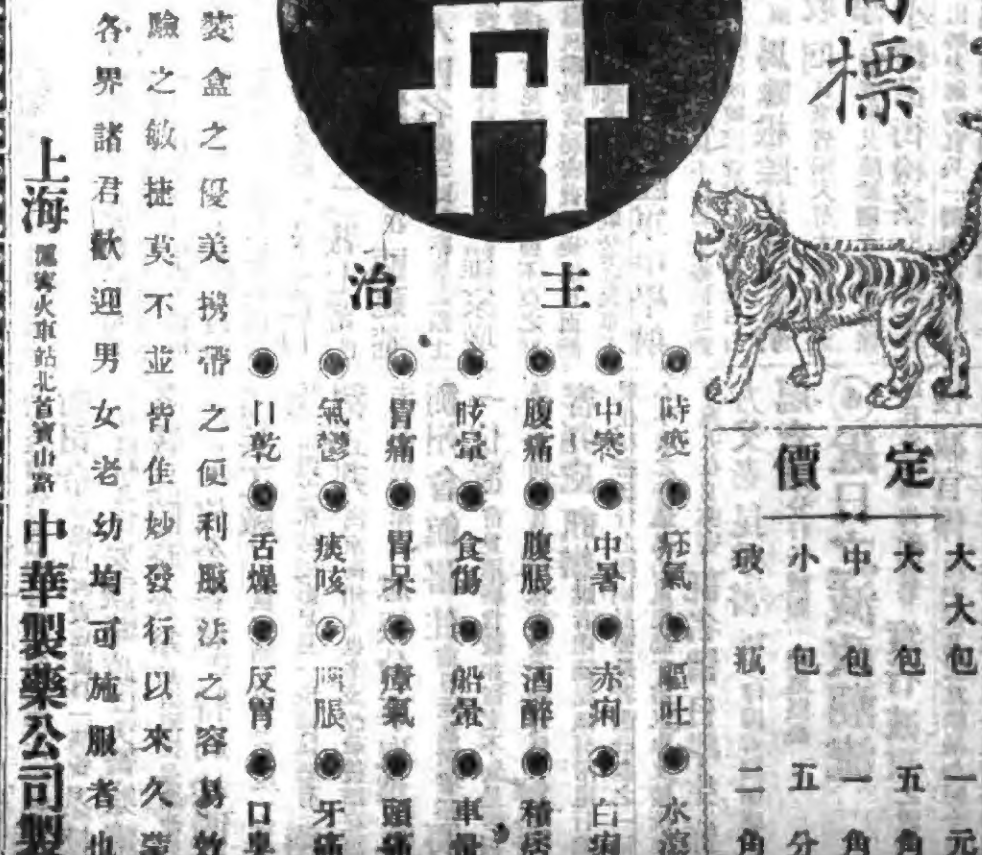 標
丹
定價
大大包一元
大包五角
中包一角
小包五分
玻瓶二角
主治
時疫 痧氣 嘔吐 水瀉
中寒 中暑 赤痢 白痢
腹痛 腹脹 酒醉 積痞
咳暈 食傷 船暈 車暈
胃痛 胃呆 瘴氣 頭痛
氣鬱 痰咳 脹 牙痛
口乾 舌燥 反胃 口臭
裝盒之優美携帶之便利服法之容易效
驗之敏捷莫不並皆佳妙發行以來久蒙
各界諸君歡迎男女老幼均可施服者也
上海 火車站北首寶山路 中華製藥公司製